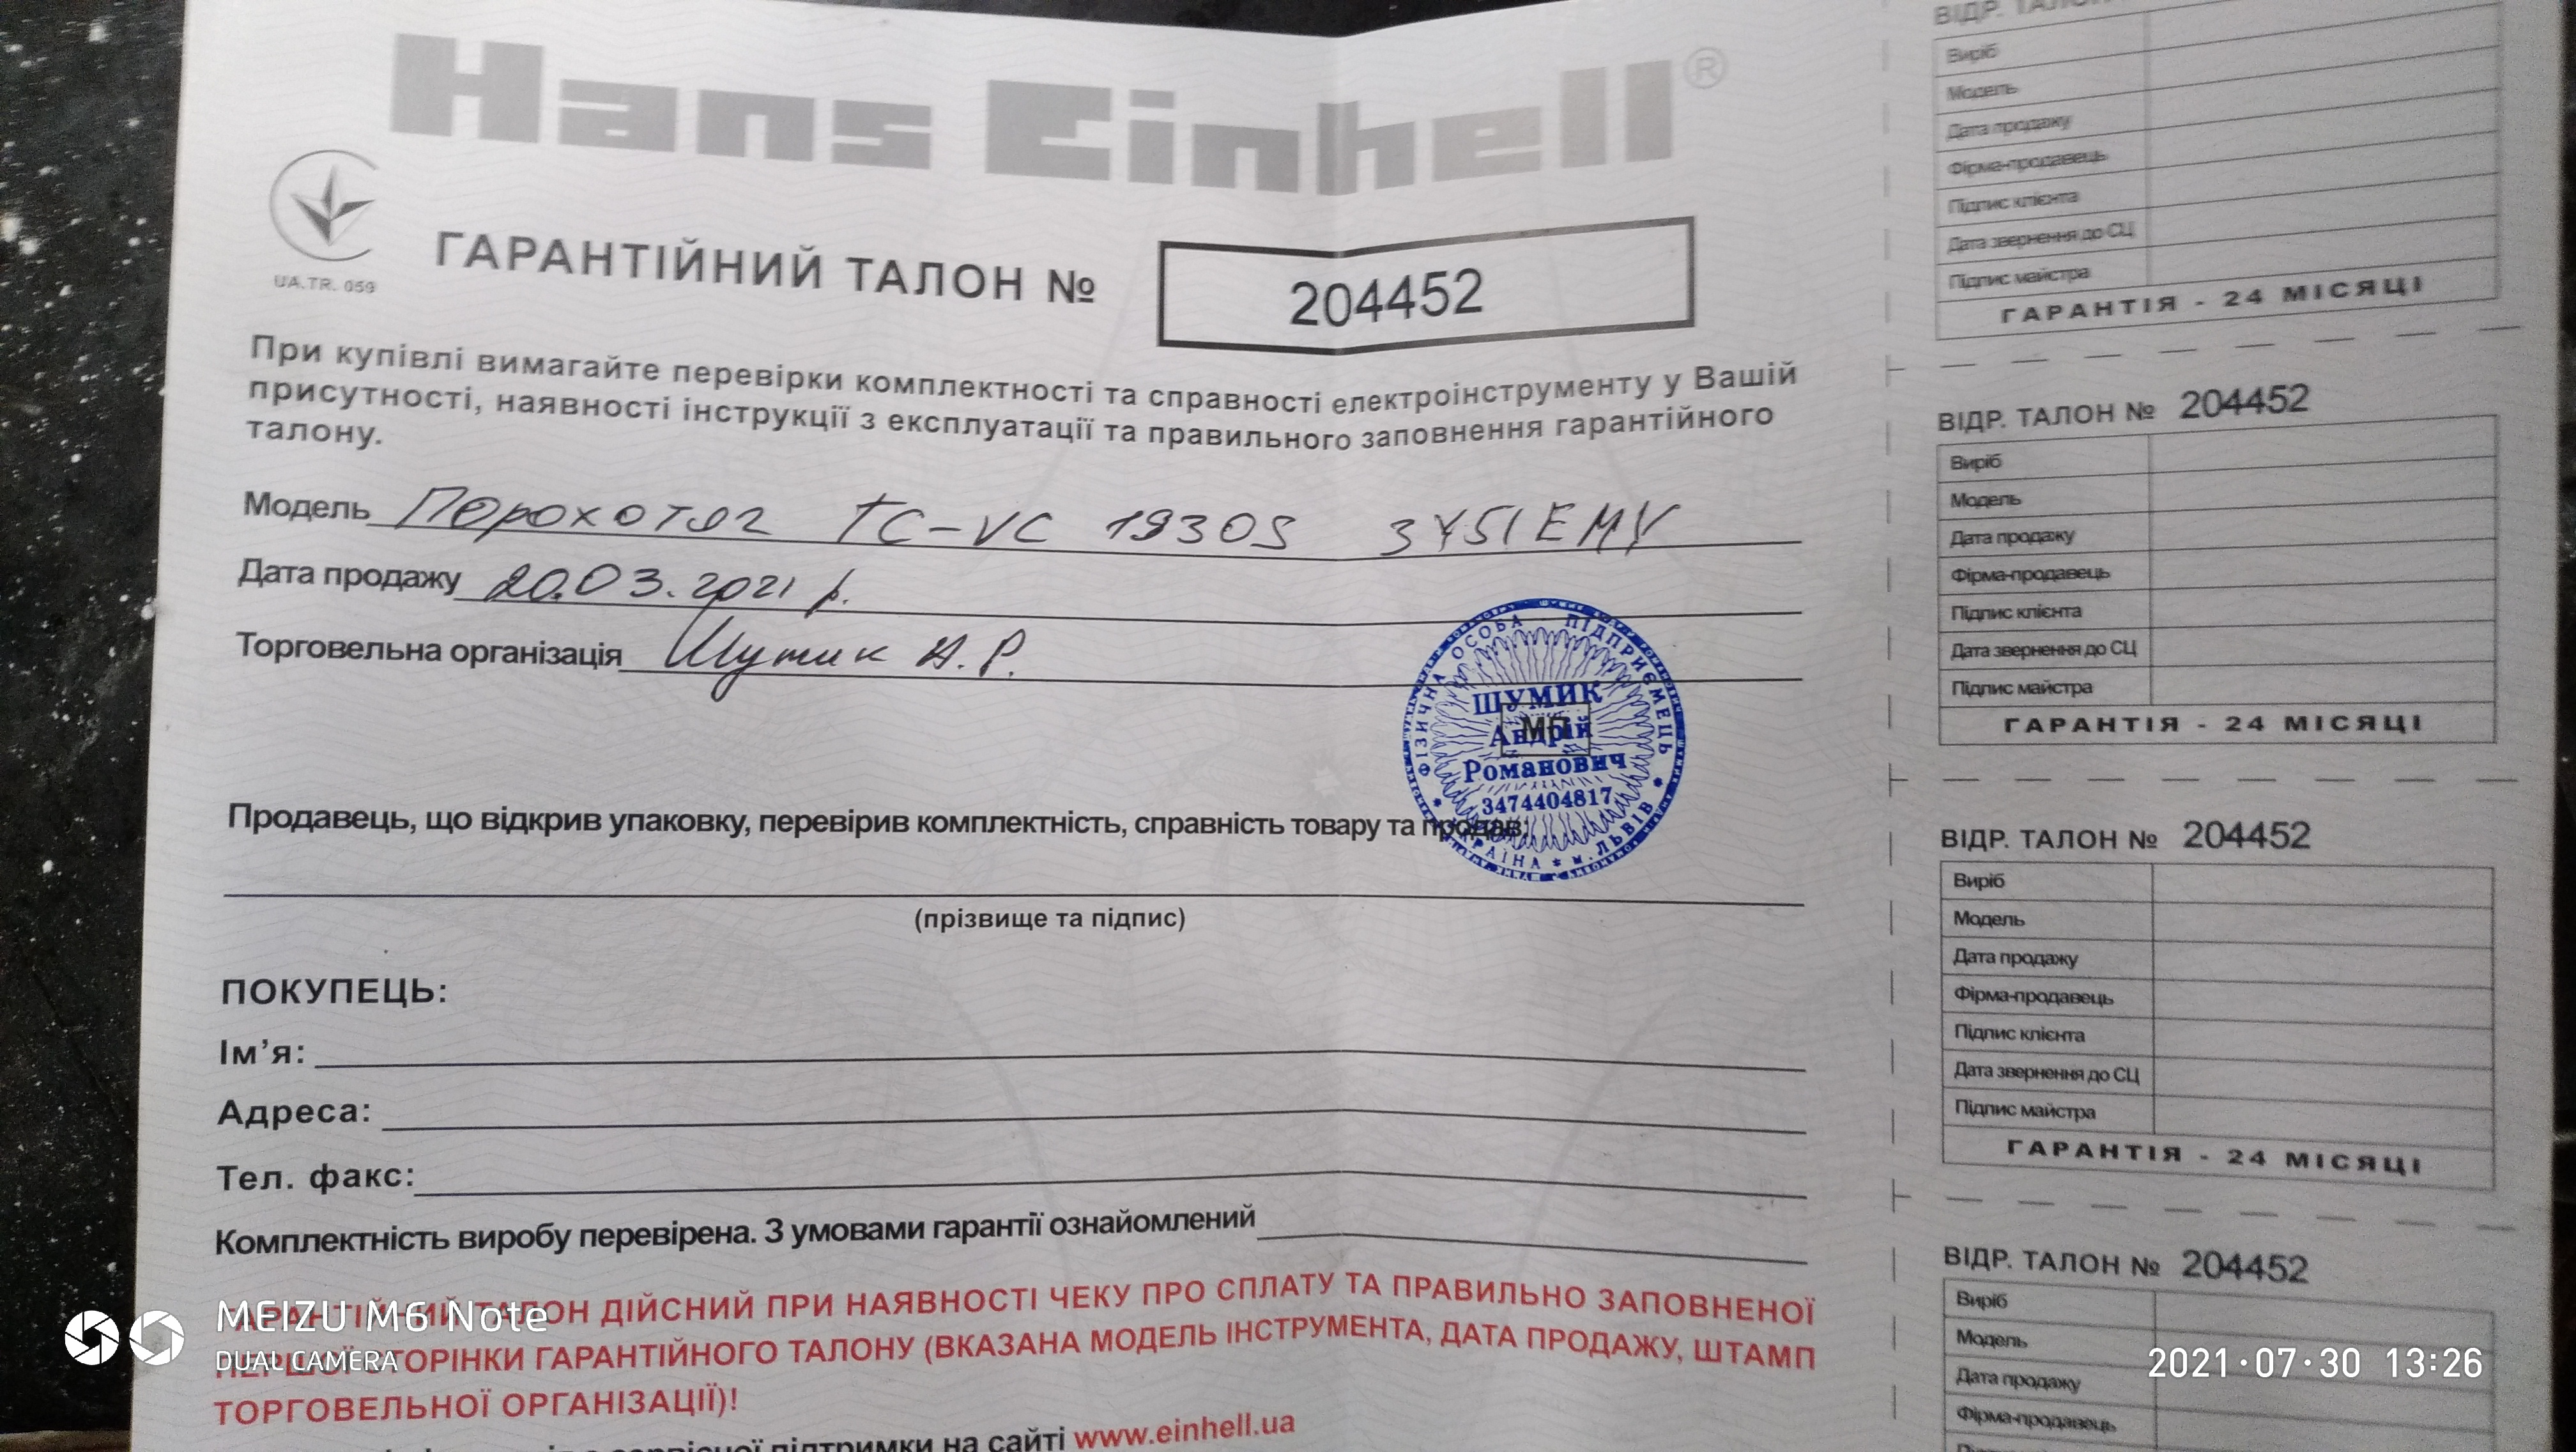 Hans Einhell®
UA.TR. 059
ГАРАНТІЙНИЙ ТАЛОН № 204452
При купівлі вимагайте перевірки комплектності та справності електроінструменту у Вашій
присутності, наявності інструкції з експлуатації та правильного заповнення гарантійного
талону.
Модель Порохотяг TC-VC 1930S
Дата продажу 20.03.2021 р.
Торговельна організація Шумик А.Р.
ФІЗИЧНА ОСОБА ПІДПРИЄМЕЦЬ
ШУМИК
МП
Андрій
Романович
3474404817
УКРАЇНА * м. ЛЬВІВ *
Продавець, що відкрив упаковку, перевірив комплектність, справність товару та продав:
(прізвище та підпис)
ПОКУПЕЦЬ:
Ім’я:
Адреса:
Тел. факс:
Комплектність виробу перевірена. З умовами гарантії ознайомлений
ГАРАНТІЙНИЙ ТАЛОН ДІЙСНИЙ ПРИ НАЯВНОСТІ ЧЕКУ ПРО СПЛАТУ ТА ПРАВИЛЬНО ЗАПОВНЕНОЇ
ПЕРШОЇ СТОРІНКИ ГАРАНТІЙНОГО ТАЛОНУ (ВКАЗАНА МОДЕЛЬ ІНСТРУМЕНТА, ДАТА ПРОДАЖУ, ШТАМП
ТОРГОВЕЛЬНОЇ ОРГАНІЗАЦІЇ)!
сервісної підтримки на сайті www.einhell.ua
ВІДР. ТАЛОН
Виріб
Модель
Дата продажу
Фірма-продавець
Підпис клієнта
Дата звернення до СЦ
Підпис майстра
ГАРАНТІЯ - 24 МІСЯЦІ
ВІДР. ТАЛОН № 204452
Виріб
Модель
Дата продажу
Фірма-продавець
Підпис клієнта
Дата звернення до СЦ
Підпис майстра
ГАРАНТІЯ - 24 МІСЯЦІ
ВІДР. ТАЛОН № 204452
Виріб
Модель
Дата продажу
Фірма-продавець
Підпис клієнта
Дата звернення до СЦ
Підпис майстра
ГАРАНТІЯ - 24 МІСЯЦІ
ВІДР. ТАЛОН № 204452
Виріб
Модель
Дата продажу
Фірма-продавець
MEIZU M6 Note
DUAL CAMERA
2021·07·30 13:26